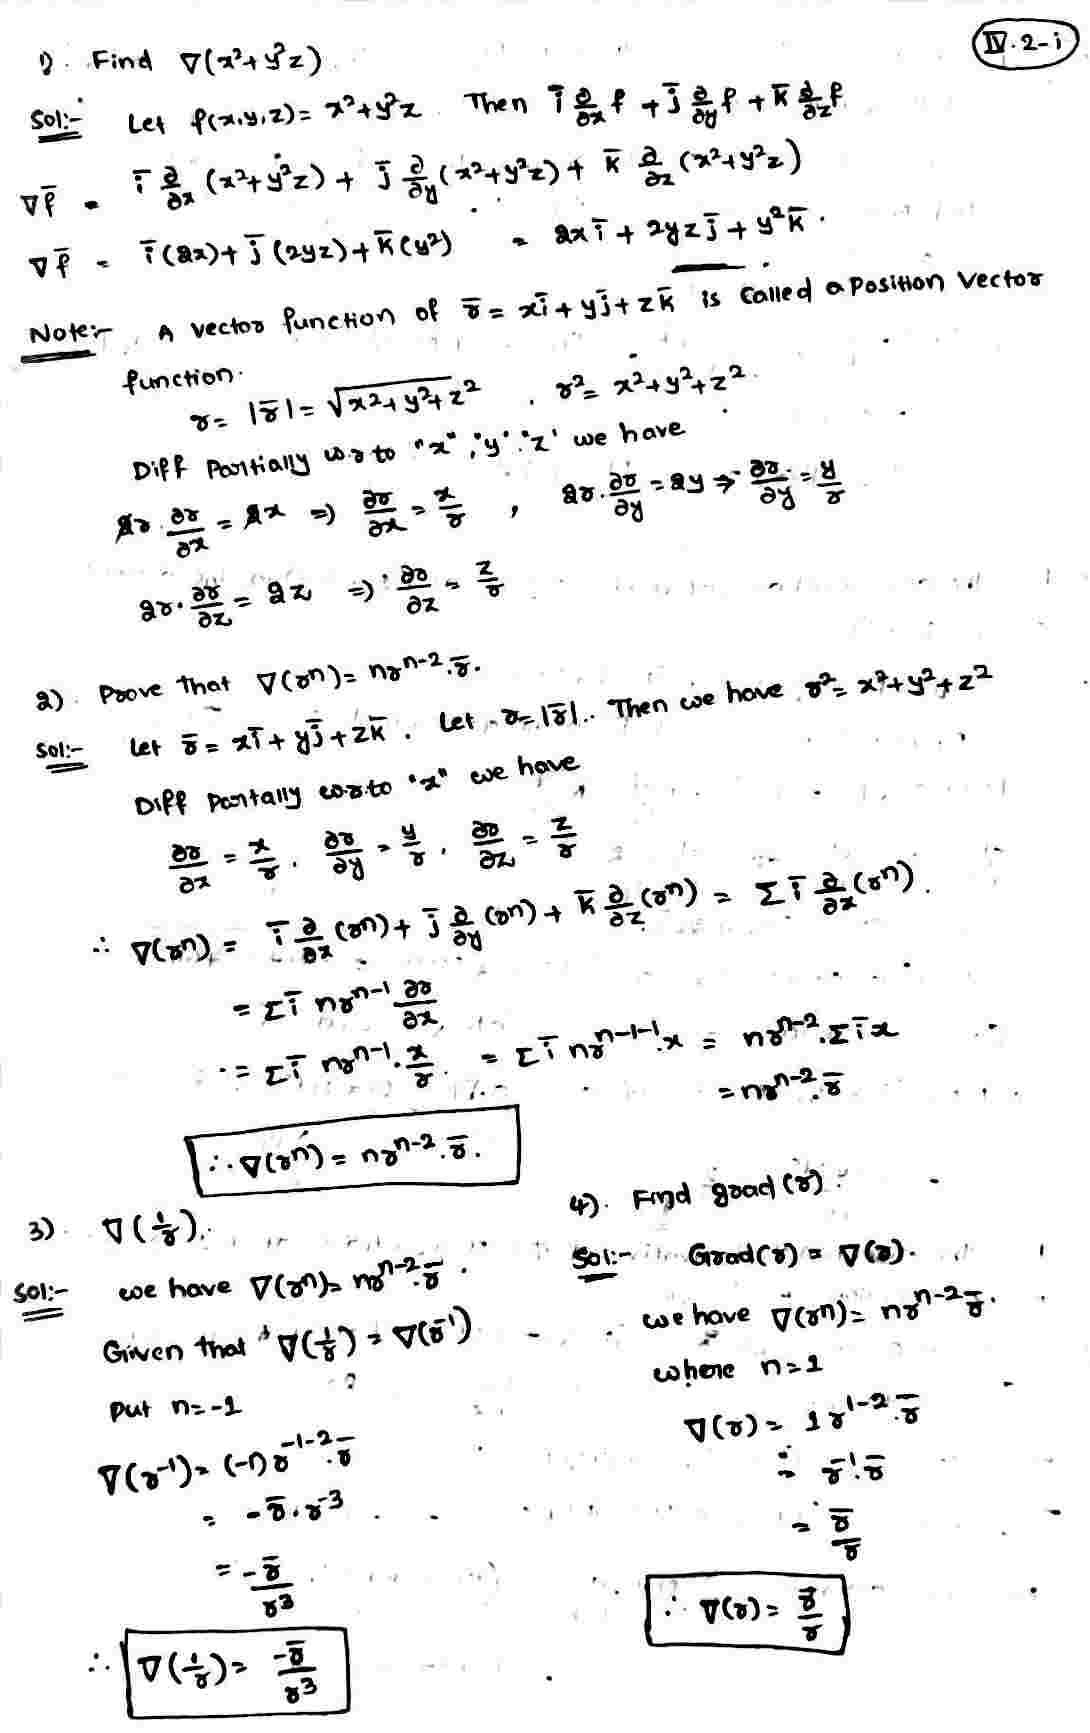 IV.2-i
1) Find ∇(x²+y²z)
Sol:- Let f(x,y,z)= x²+y²z Then ī ∂/∂x f + j̄ ∂/∂y f + k̄ ∂/∂z f
∇f̄ = ī ∂/∂x (x²+y²z) + j̄ ∂/∂y (x²+y²z) + k̄ ∂/∂z (x²+y²z)
∇f̄ = ī(2x)+ j̄(2yz)+k̄(y²) = 2xī + 2yzj̄ + y²k̄.
Note:- A vector function of r̄ = xī + yj̄ + zk̄ is called a Position Vector
function.
r = |r̄| = √x²+y²+z² , r² = x²+y²+z².
Diff Partially w.r to "x", "y" "z" we have
2r . ∂r/∂x = 2x ⇒ ∂r/∂x = x/r , 2r . ∂r/∂y = 2y ⇒ ∂r/∂y = y/r
2r . ∂r/∂z = 2z ⇒ ∂r/∂z = z/r
2) Prove that ∇(rⁿ)= nrⁿ⁻².r̄.
Sol:- Let r̄ = xī + yj̄ + zk̄. Let r=|r̄|. Then we have r² = x²+y²+z²
Diff Partally w.r.to "x" we have
∂r/∂x = x/r , ∂r/∂y = y/r , ∂r/∂z = z/r
∴ ∇(rⁿ) = ī ∂/∂x (rⁿ)+ j̄ ∂/∂y (rⁿ) + k̄ ∂/∂z (rⁿ) = Σ ī ∂/∂x (rⁿ).
= Σ ī nrⁿ⁻¹ ∂r/∂x
= Σ ī nrⁿ⁻¹ . x/r = Σ ī nrⁿ⁻¹⁻¹.x = nrⁿ⁻².Σ ī x
= nrⁿ⁻².r̄
∴ ∇(rⁿ) = nrⁿ⁻².r̄.
3) ∇(1/r).
Sol:- we have ∇(rⁿ)= nrⁿ⁻².r̄.
Given that ∇(1/r) = ∇(r⁻¹)
Put n=-1
∇(r⁻¹)= (-1) r⁻¹⁻².r̄
= -r̄.r⁻³
= -r̄/r³
∴ ∇(1/r) = -r̄/r³
4). Find grad (r).
Sol:- Grad(r) = ∇(r).
we have ∇(rⁿ)= nrⁿ⁻²r̄.
where n=1
∇(r) = 1 r¹⁻².r̄
= r⁻¹.r̄
= r̄/r
∴ ∇(r) = r̄/r